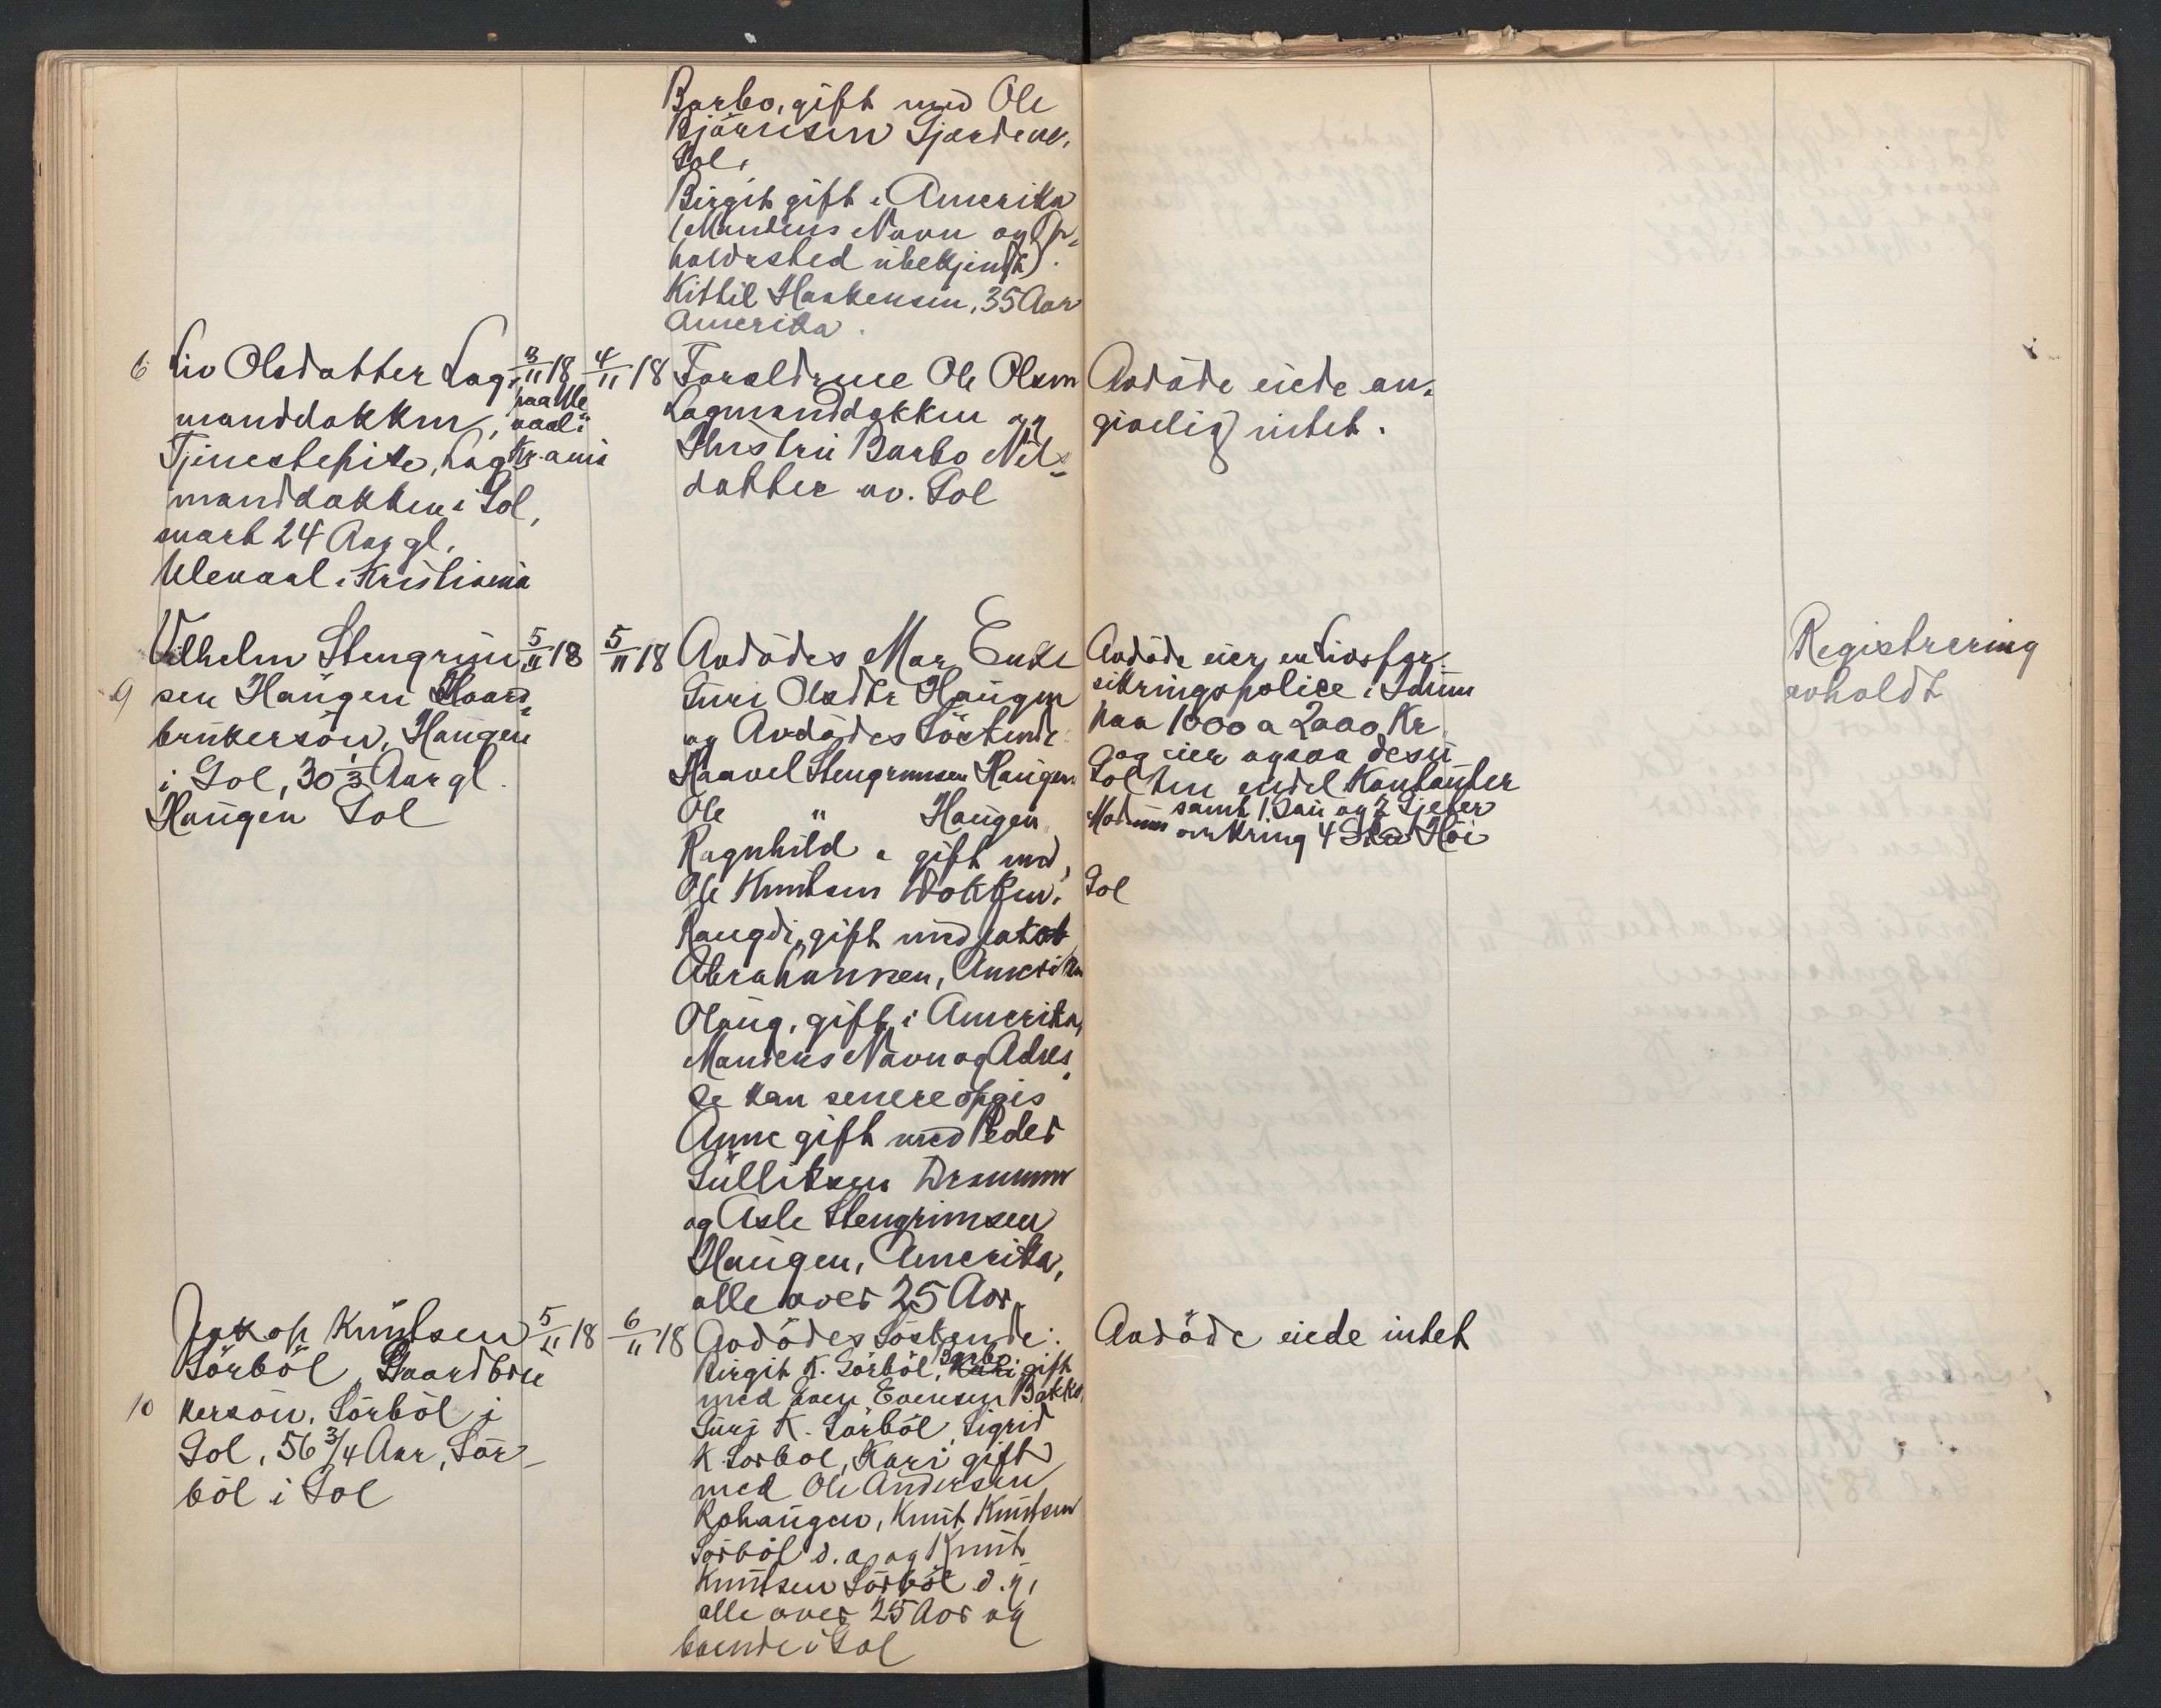 Barbo, gift med Ole
Björnsen Gjerdene,
Gol,
Birgit gift i Amerika
(Mandens Navn og Op-
holdssted ubekjendt).
Kittil Haakensen, 35 Aar
Amerika.
6 Liv Olsdatter Lag-
manddokken,
Tjenestepike, Lag-
manddokken i Gol,
snart 24 Aar gl.
Ulevaal i Kristiania
3/11 18
paa Ule
vaal i
Kr.ania
4/11 18
Foreldrene Ole Olsen
Lagmanddokken og
Hustru Barbo Nils-
datter av. Gol
Avdöde eiede an-
givelig intet.
9 Vilhelm Stengrim
sen Haugen Gaard-
brukersön, Haugen
i Gol, 30 1/3 Aar gl.
Haugen Gol
5/11 18
5/11 18
Avdödes Mor Enke
Guri Olsdtr Haugen
og Avdödes Söskende:
Haavel Stengrimsen Haugen
Ole " Haugen
Ragnhild " gift med
Ole Knutsen Dokken,
Raugdi, gift med Jakob
Abrahamsen, Amerika
Olaug, gift i Amerika,
Mandens Navn og Adres-
se kan senere opgis
Anne gift med Peder
Gulliksen Drammen
og Asle Stengrimsen
Haugen, Amerika,
alle over 25 Aar.
Avdöde eier en Livsfor-
sikringspolice i Idun
paa 1000 a 2000 Kr
og eier ogsaa desu
Gol ten endel Kontanter
Modum samt 1 Sau og 2 Gjeter
omkring 4 Höi
Gol
Registrering
avholdt
10 Jakop Knutsen
Sörböl, Gaardbru
kersön, Sörböl i
Gol, 56 3/4 Aar, Sör-
böl i Gol
5/11 18
6/11 18
Avdödes Söskende:
Birgit K. Sörböl, Barbo Kari gift
med Even Evensen Bakke,
Guri K. Sörböl, Sigrid
K Sorbol, Kari gift
med Ole Andersen
Rohaugen, Knut Knutsen
Sörböl d. æ og Knut
Knutsen Sörböl d. y,
alle over 25 Aar og
boende i Gol
Avdöde eiede intet